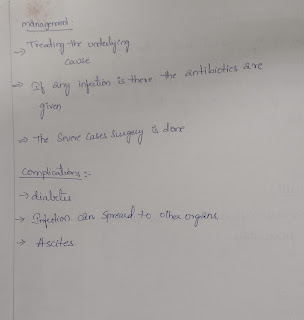 management:
→ Treating the underlying
cause
⇒ If any infection is there the antibiotics are
given
⇒ The Severe cases surgery is done
Complications :-
→ diabetes
→ Infection can spread to other organs
→ Ascites